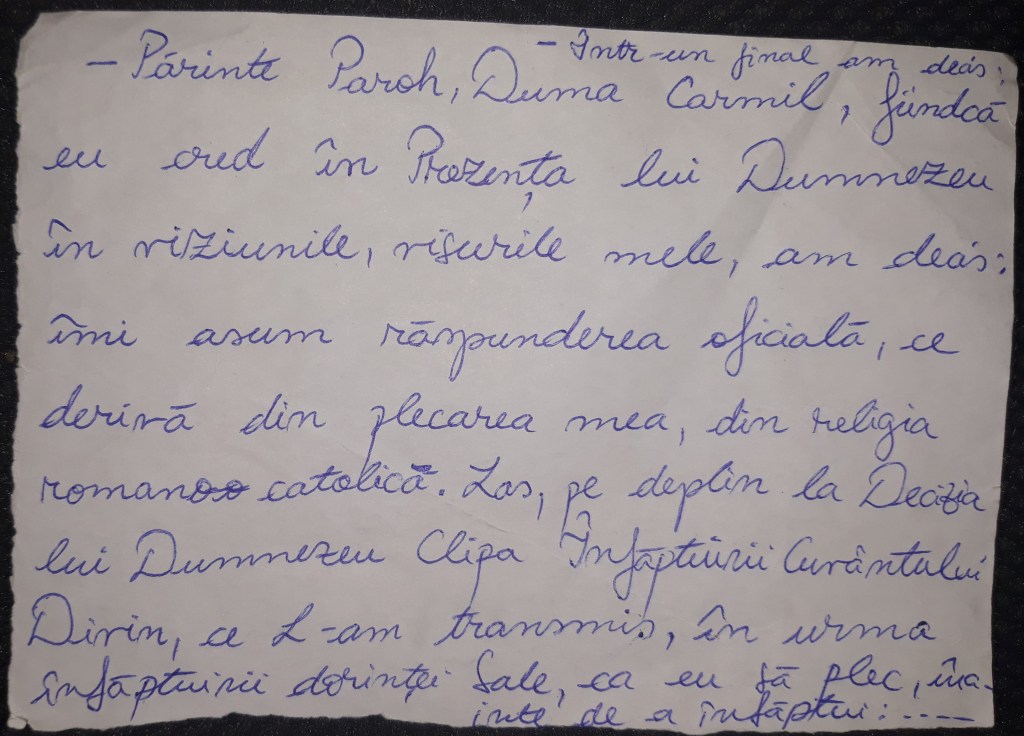 - Într-un final am decis:
- Părinte Paroh, Duma Carmil, fiindcă
eu cred în Prezența lui Dumnezeu
în viziunile, visurile mele, am decis:
îmi asum răspunderea oficială, ce
derivă din plecarea mea, din religia
romano catolică. Las, pe deplin la Decizia
lui Dumnezeu Clipa Înfăptuirii Cuvântului
Divin, ce L-am transmis, în urma
înfăptuirii dorinței Sale, ca eu să plec, îna-
inte de a înfăptui: -----